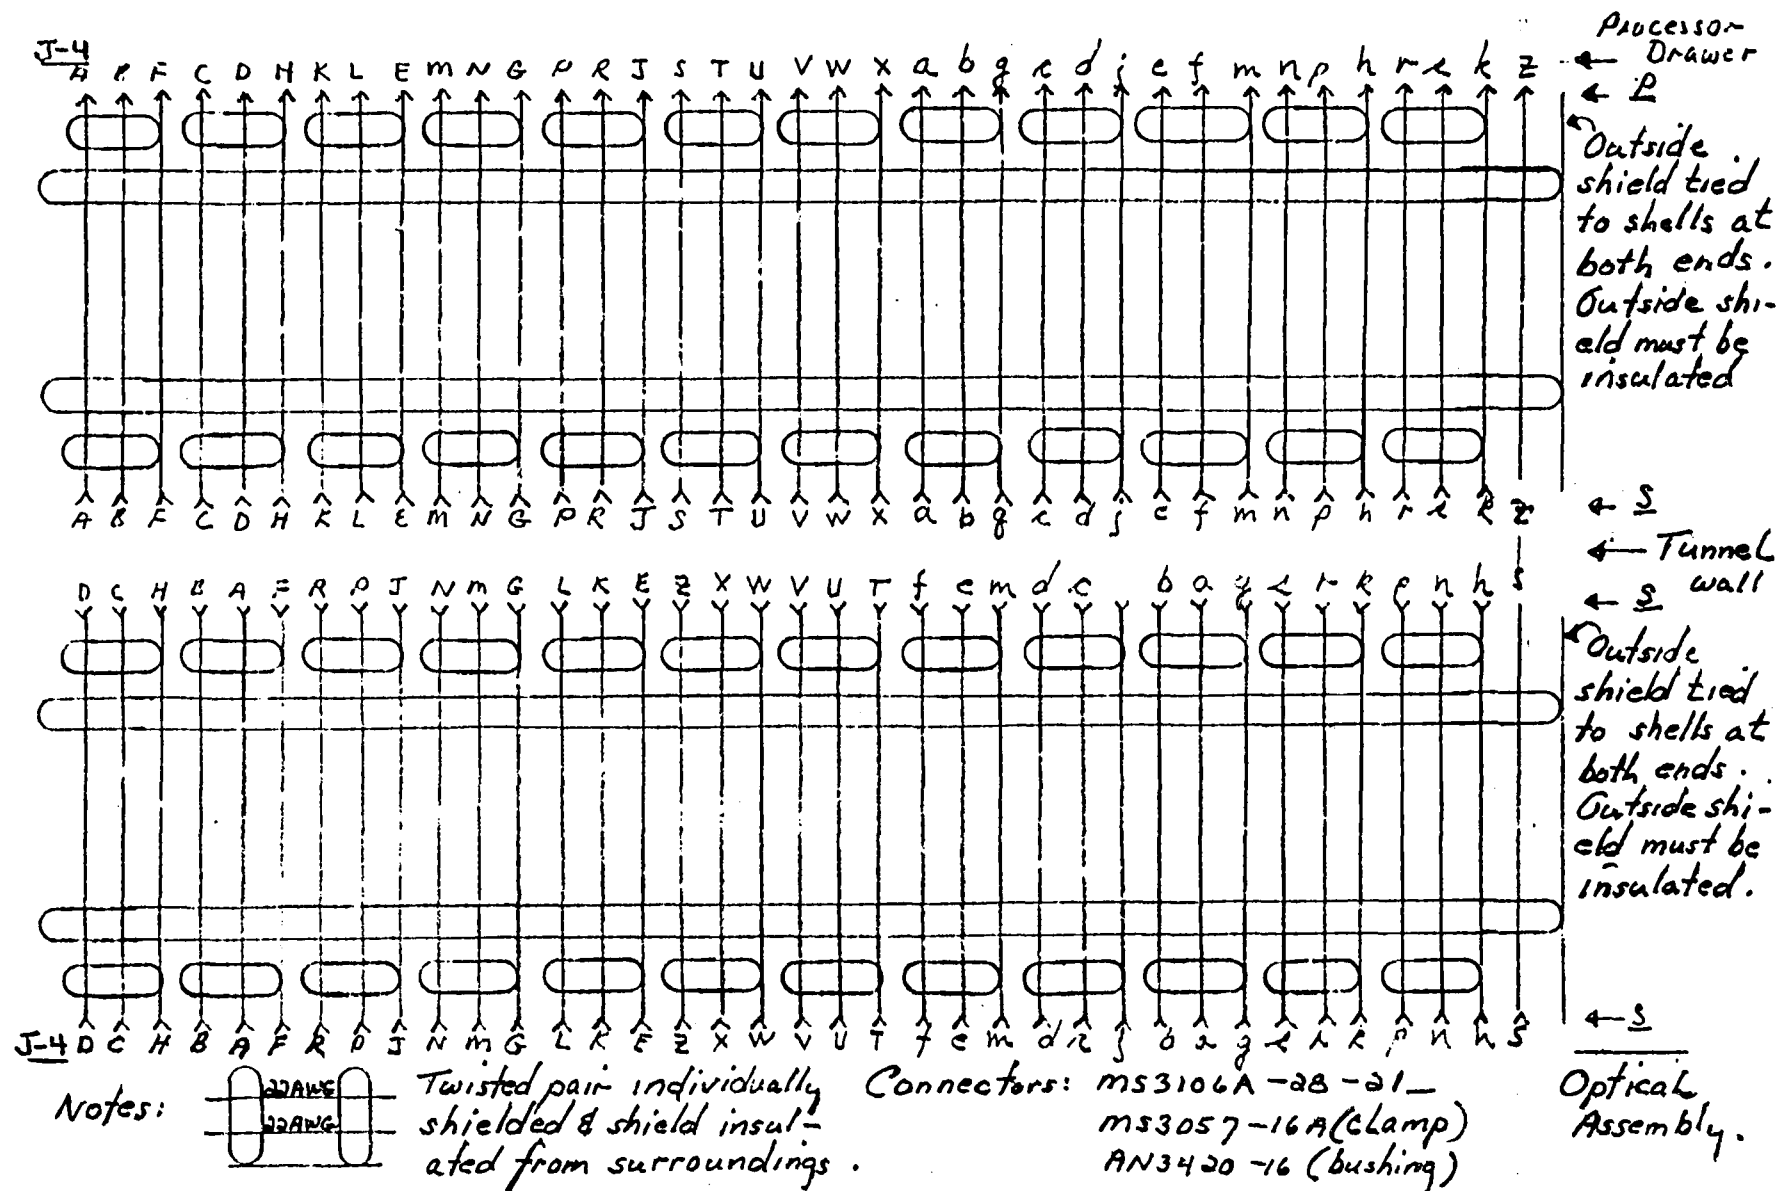 Processor
Drawer
J-4
A B F C D H K L E m N G P R J S T U V W X a b g c d j e f m n p h r s k Z ←
← P
Outside
shield tied
to shells at
both ends.
Outside shi-
eld must be
insulated
A B F C D H K L E m N G P R J S T U V W X a b g c d j e f m n p h r s k Z
← S
← Tunnel
wall
D C H B A F R P J N m G L K E Z X W V U T f e m d c b a g s r k p n h S
← S
Outside
shield tied
to shells at
both ends.
Outside shi-
eld must be
insulated.
J-4 D C H B A F R P J N m G L K E Z X W V U T f e m d c j b a g s r k p n h S
← S
Notes:
22AWG
22AWG
Twisted pair individually
shielded & shield insul-
ated from surroundings.
Connectors: MS3106A-28-21_
MS3057-16A (clamp)
AN3420-16 (bushing)
Optical
Assembly.